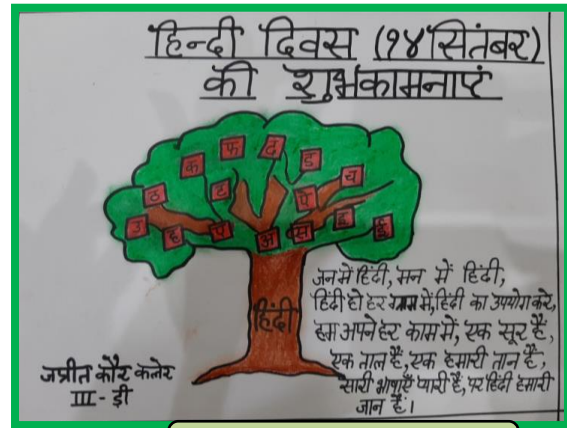 हिन्दी दिवस (१४ सितंबर)
की शुभकामनाएं
क फ द ड
ठ ट पे व
उ ह प अ स इ ई
हिंदी
जन में हिंदी, मन में हिंदी,
हिंदी हो हर में, हिंदी का उपयोग करे,
हम अपने हर काम में, एक सूर है,
एक ताल है, एक हमारी तान है,
सारी भाषाएँ प्यारी है, पर हिंदी हमारी
जान है।
जप्रीत कौर कलेर
III - डी